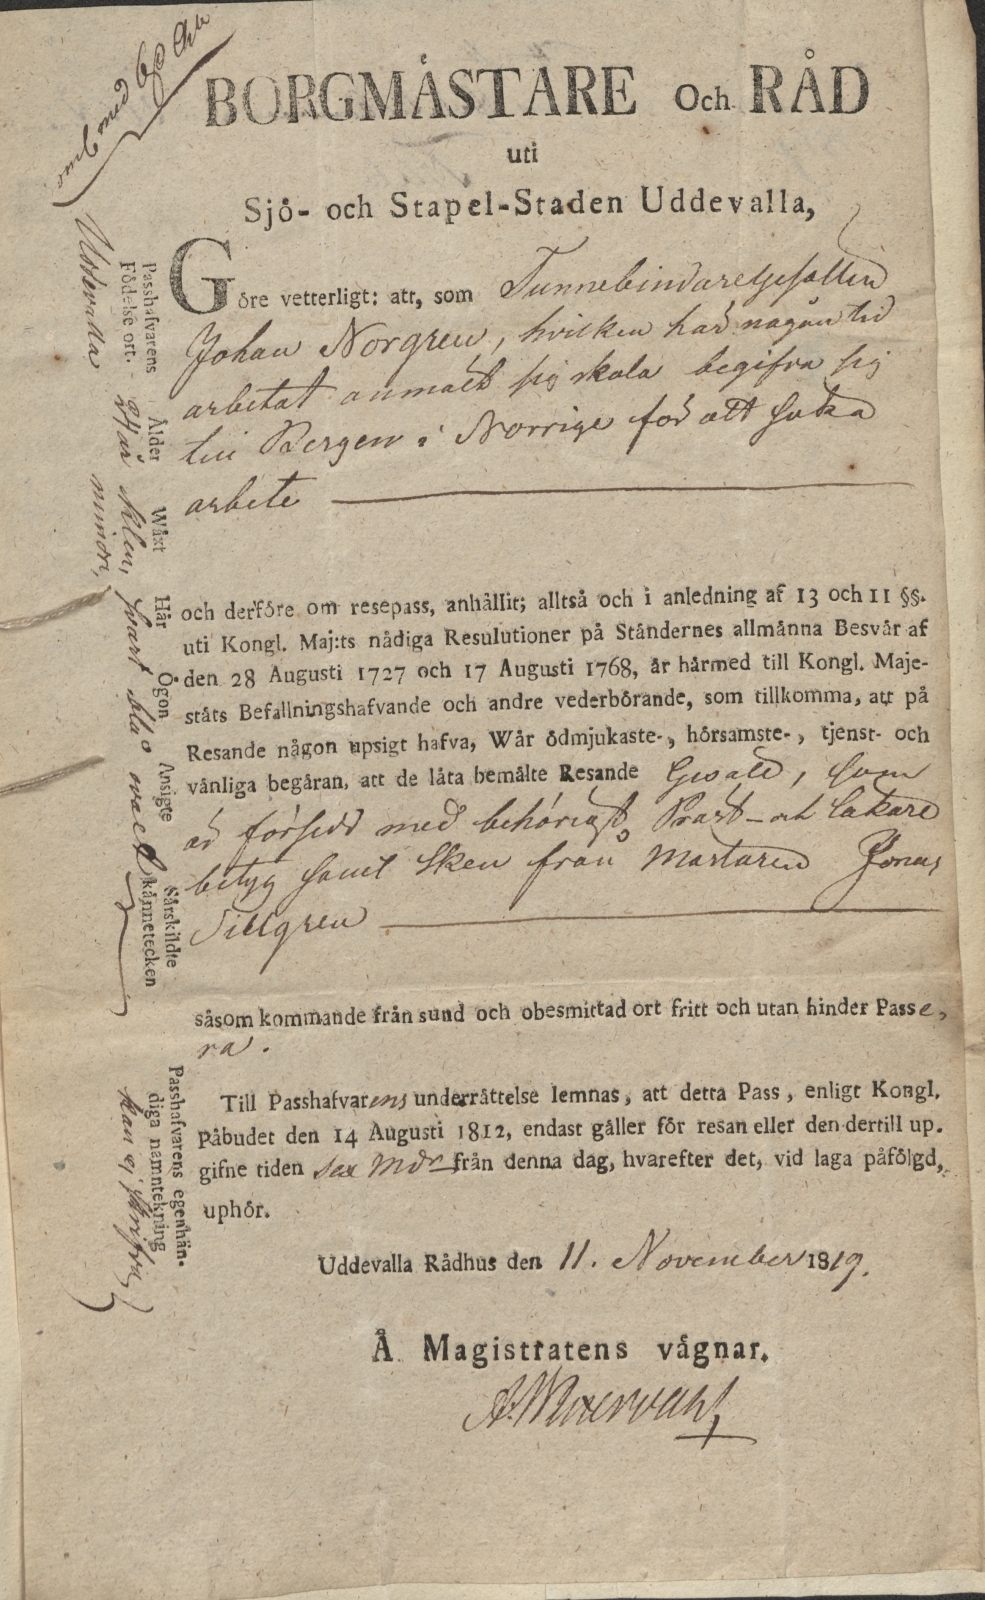 BORGMÅSTARE och RÅD
uti
Sjö- och Stapel-Staden Uddevalla,
Göre vetterligt: att, som Tunnebindaregesällen
Johan Norgren, hvilken här någon tid
arbetat anmält sig skola begifva sig
till Bergen i Norrige för att söka
arbete
och derföre om resepass, anhållit; alltså och i anledning af 13 och 11 §§.
uti Kongl. Maj:ts nådiga Resulutioner på Ståndernes allmånna Besvår af
den 28 Augusti 1727 och 17 Augusti 1768, år hårmed till Kongl. Maje-
ståts Befallningshafvande och andre vederbörande, som tillkomma, att på
Resande någon upsigt hafva, Wår ödmjukaste-, hörsamste-, tjenst- och
vånliga begåran, att de låta bemålte Resande Gesäll, som
är försedd med behörigt Präst- och Läkare
betyg samt Sken från Mästaren Jonas
Tillgren
såsom kommande från sund och obesmittad ort fritt och utan hinder Passe,
ra.
Till Passhafvarens underråttelse lemnas, att detta Pass, enligt Kongl.
Påbudet den 14 Augusti 1812, endast gåller för resan eller den dertill up.
gifne tiden sex Mdr från denna dag, hvarefter det, vid laga påfölgd,
uphör.
Uddevalla Rådhus den 11. November 1819.
Å Magistratens vågnar.
Passhafvarens
Födelse ort.
Uddevalla
Ålder
24 år
Wåxt
liten,
mindre,
Hår
svart
Ögon
blå
Ansigte
ovalt
Sårskildte
kånnetecken
Passhafvarens egenhån-
diga namntekning
kan ej skrifva